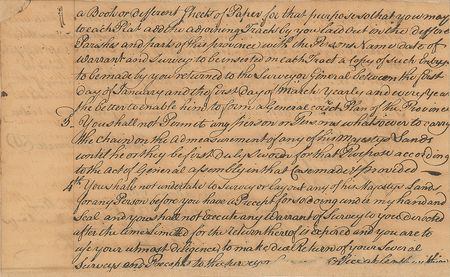 a Book or different Sheets of Paper for that purpose so that you may
to each Plat add the adjoining Tracts by you laid out on the different
Parishes and parts of this province with the Persons Name date of
Warrant and Survey to be inserted in each Tract a Copy of such Entry
to be made by you returned to the Surveyor General between the first
day of January and the first day of March Yearly and every Year
the better to enable him to form a General Plan of the Province
3 You shall not Permit any Person or Persons whatsoever to carry
the Chain on the admeasurement of any of his Majestys Lands
until he or they be first duly Sworn for that Purpose according
to the act of General assembly in that Case made & provided
4th You shall not undertake to Survey or lay out any of his Majestys Lands
for any Person before you have a Precept for so doing under my hand and
Seal and you shall not execute any Warrant of Survey to you directed
after the time limited for the return thereof is expired and you are to
use your utmost diligence to make due Return of your Several
Surveys and Precepts to the